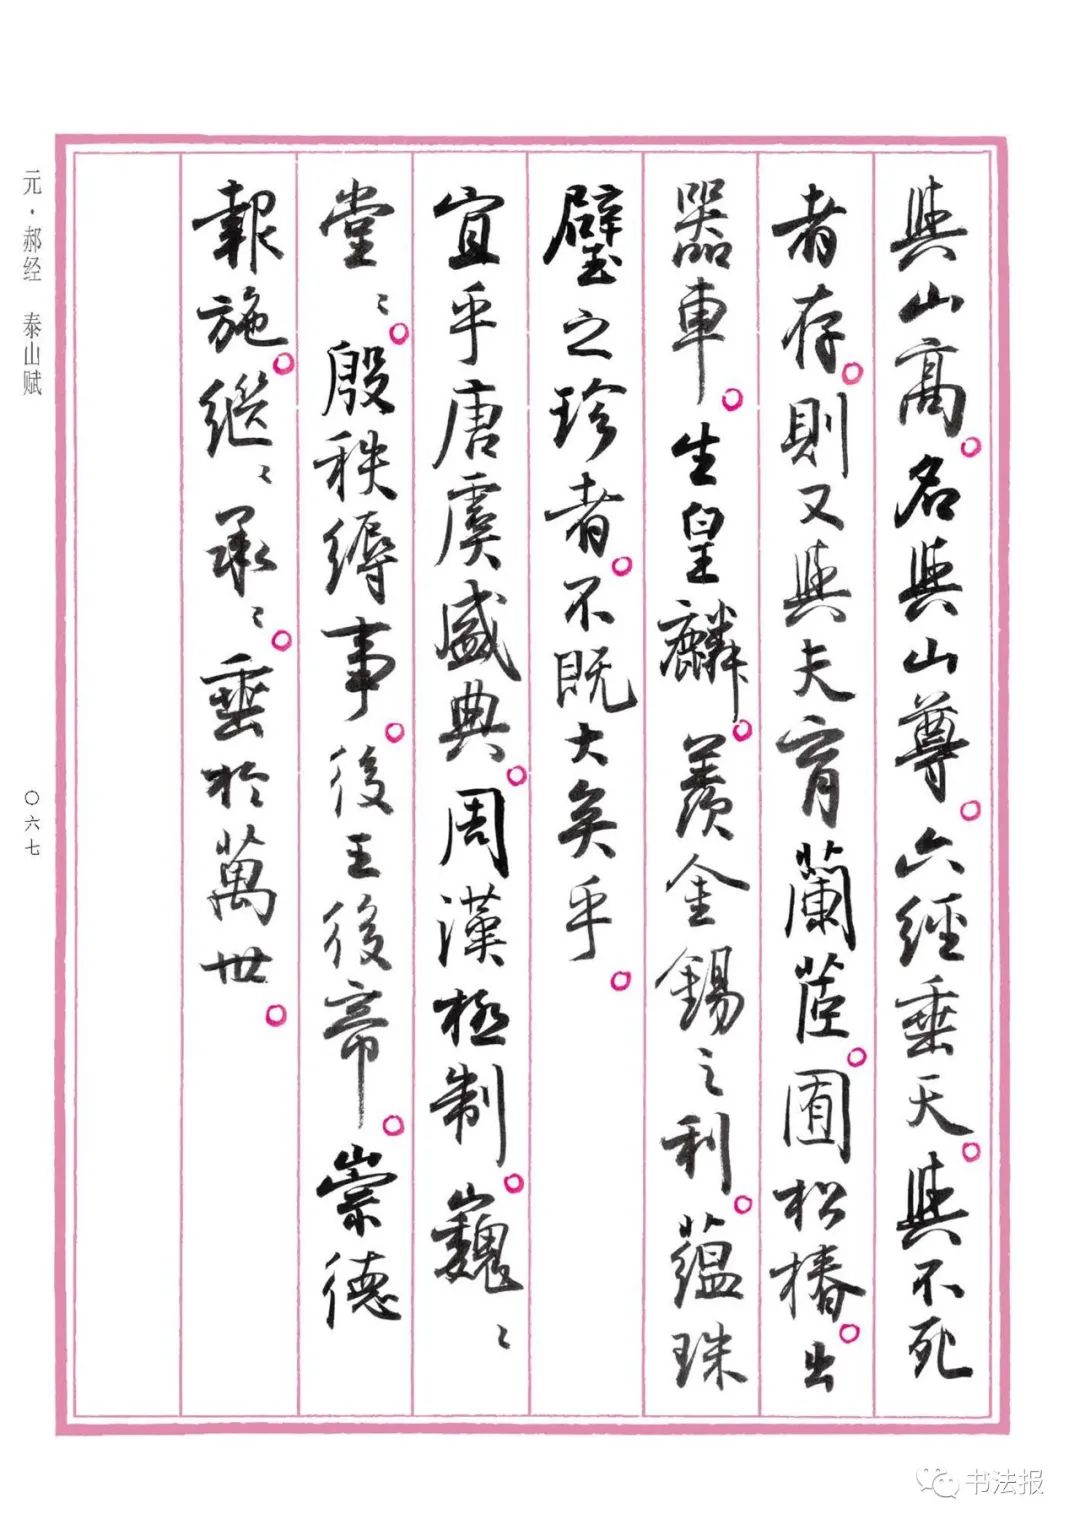 與山高。名與山尊。六經垂天。與不死
者存。則又與夫育蘭茝。囿松椿。出
器車。生皇麟。羨金錫之利。蘊珠
璧之珍者。不既大矣乎。
宜乎唐虞盛典。周漢極制。巍〻
堂〻。殷秩縟事。後王後帝。崇德
報施。繼〻承〻。垂於萬世。
元·郝经 泰山赋
〇六七
书法报